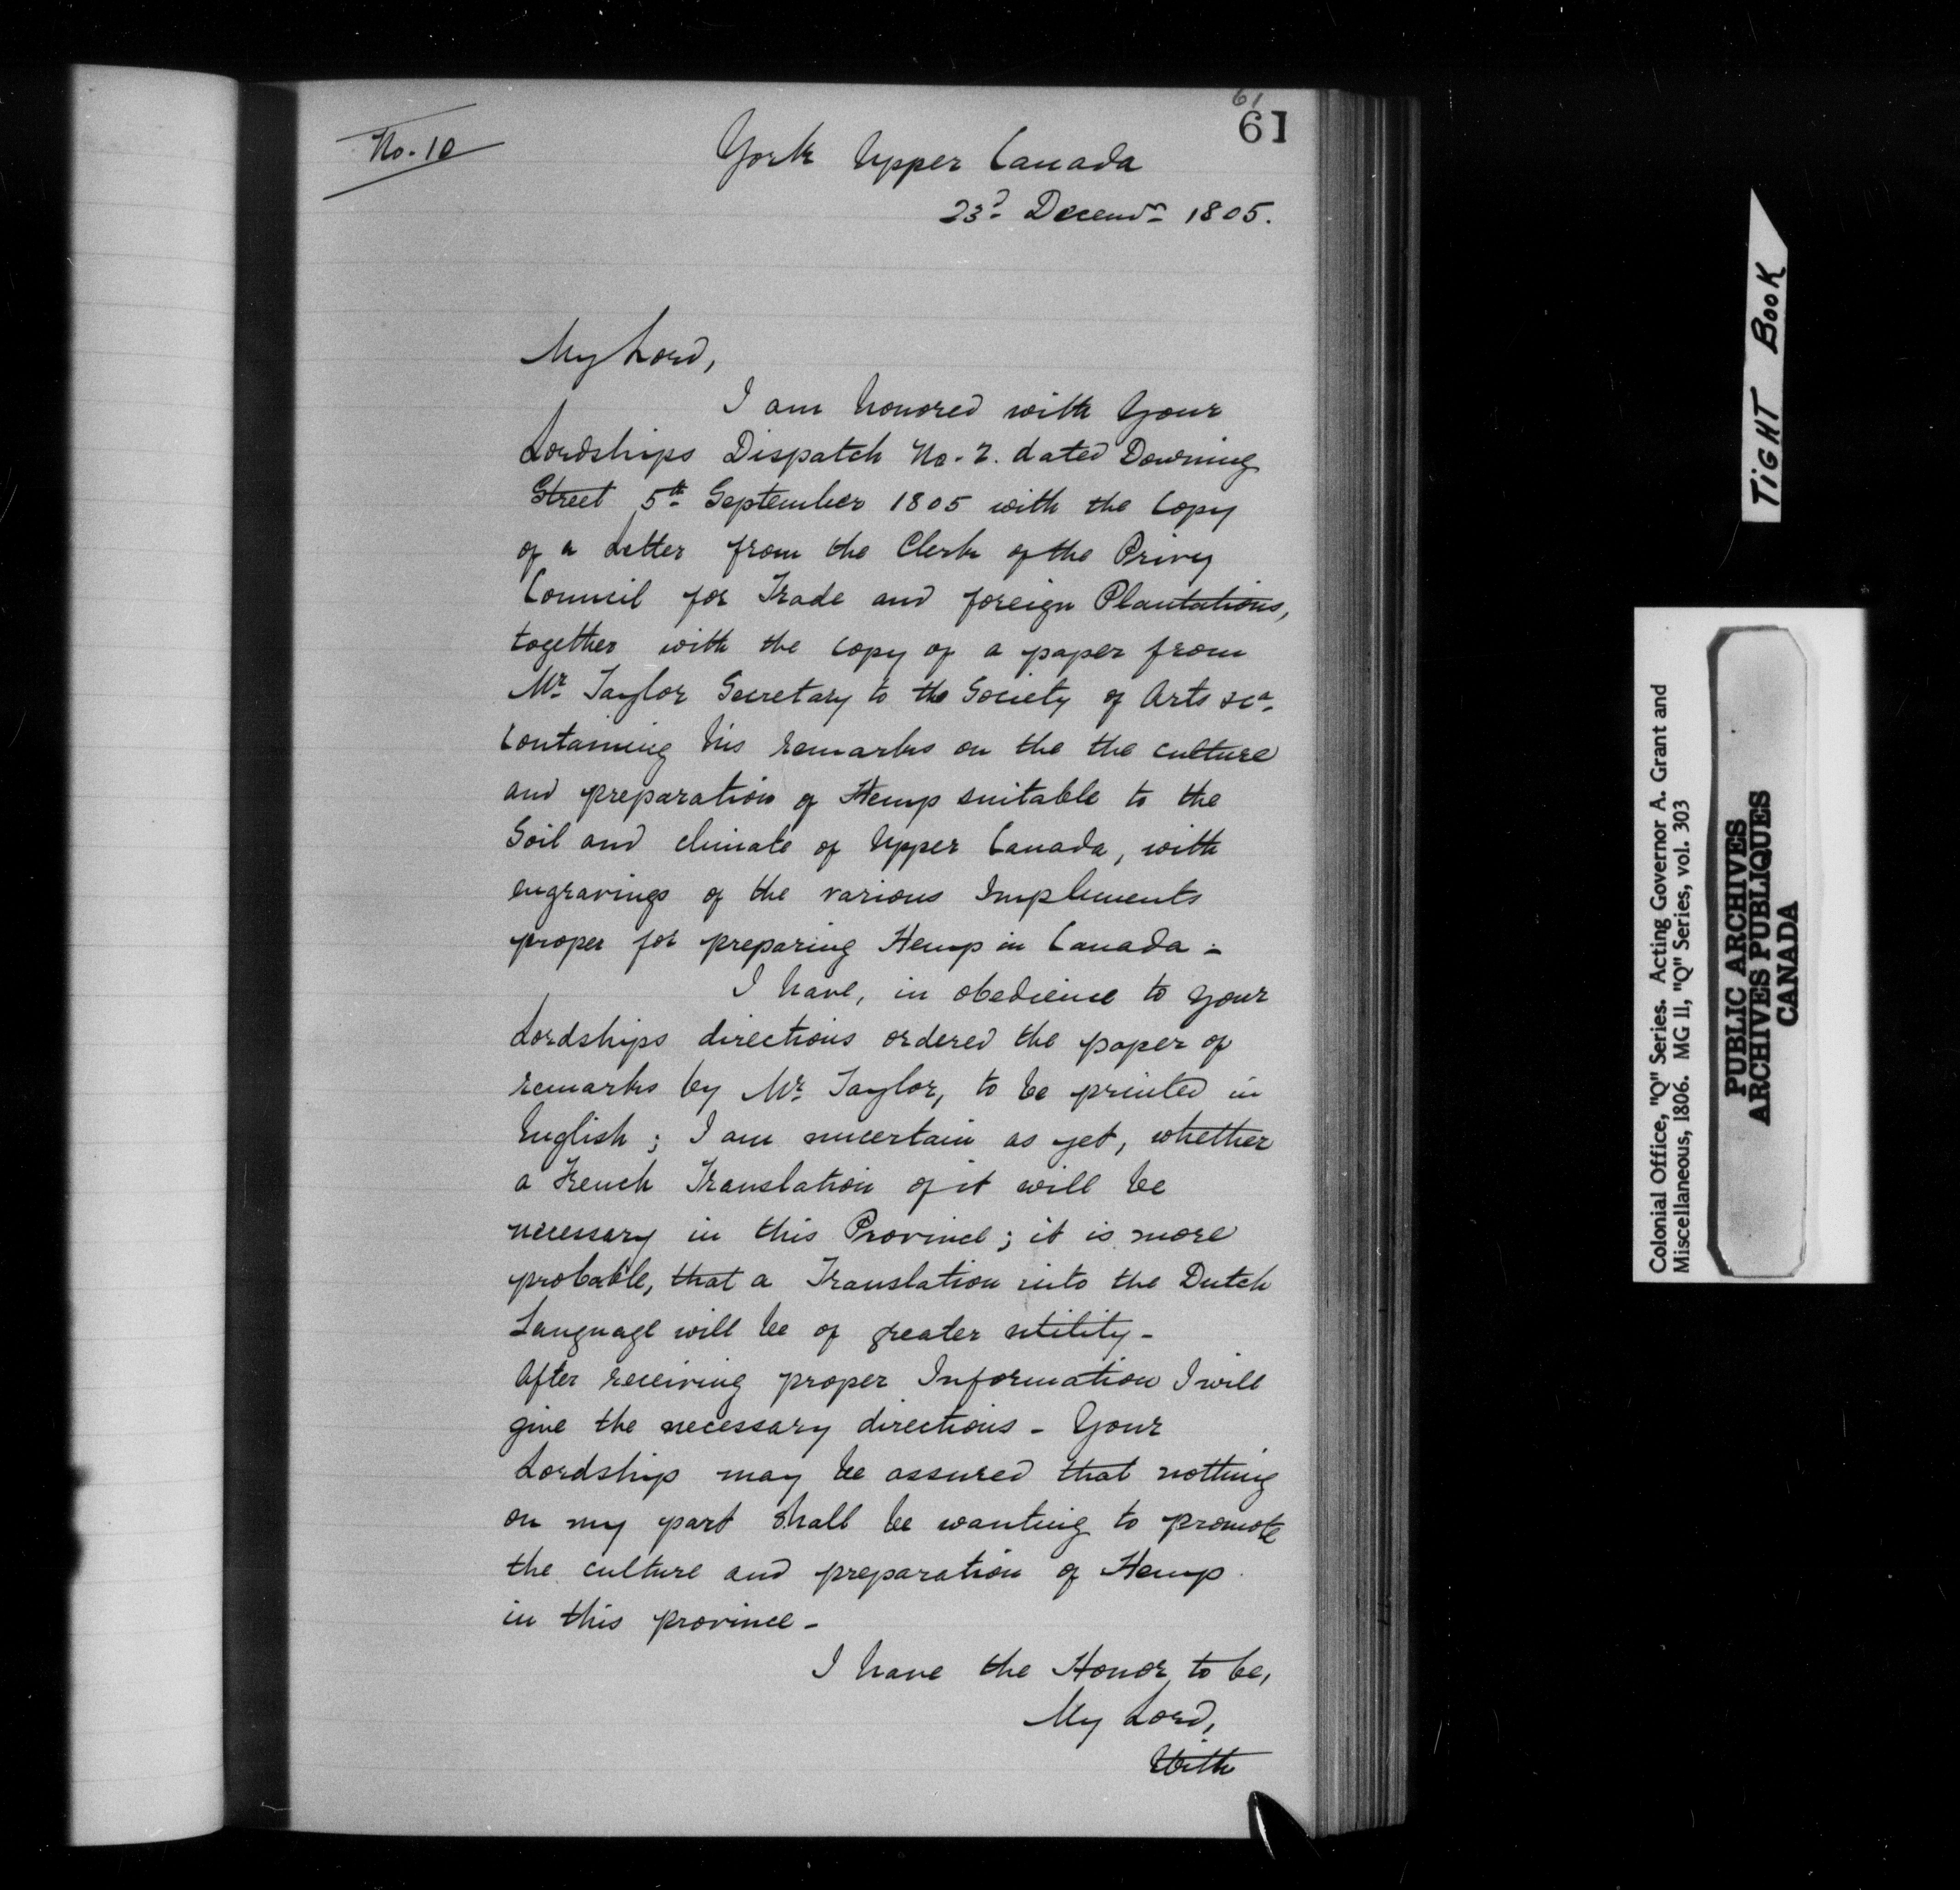 61
61
No. 10
York Upper Canada
23d Decemr 1805.
My Lord,
I am honored with Your
Lordships Dispatch No. 2. dated Downing
Street 5th September 1805 with the Copy
of a Letter from the Clerk of the Privy
Council for Trade and foreign Plantations,
together with the copy of a paper from
Mr Taylor Secretary to the Society of Arts &ca.
Containing his remarks on the the culture
and preparation of Hemp suitable to the
Soil and climate of Upper Canada, with
engravings of the various Implements
proper for preparing Hemp in Canada -
I have, in obedience to Your
Lordships directions ordered the paper of
remarks by Mr Taylor, to be printed in
English; I am uncertain as yet, whether
a French Translation of it will be
necessary in this Province; it is more
probable, that a Translation into the Dutch
Language will be of greater utility -
After receiving proper Information I will
give the necessary directions - Your
Lordship may be assured that nothing
on my part shall be wanting to promote
the culture and preparation of Hemp
in this province -
I have the Honor to be,
My Lord,
With
TIGHT BOOK
Colonial Office, "Q" Series. Acting Governor A. Grant and
Miscellaneous, 1806. MG 11, "Q" Series, vol. 303
PUBLIC ARCHIVES
ARCHIVES PUBLIQUES
CANADA